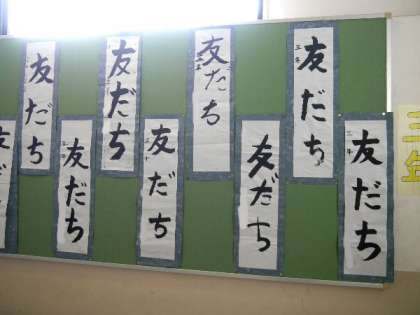 友だち
友だち
友だち
友だち
友だち
友だち
友だち
友だち
だち
三年